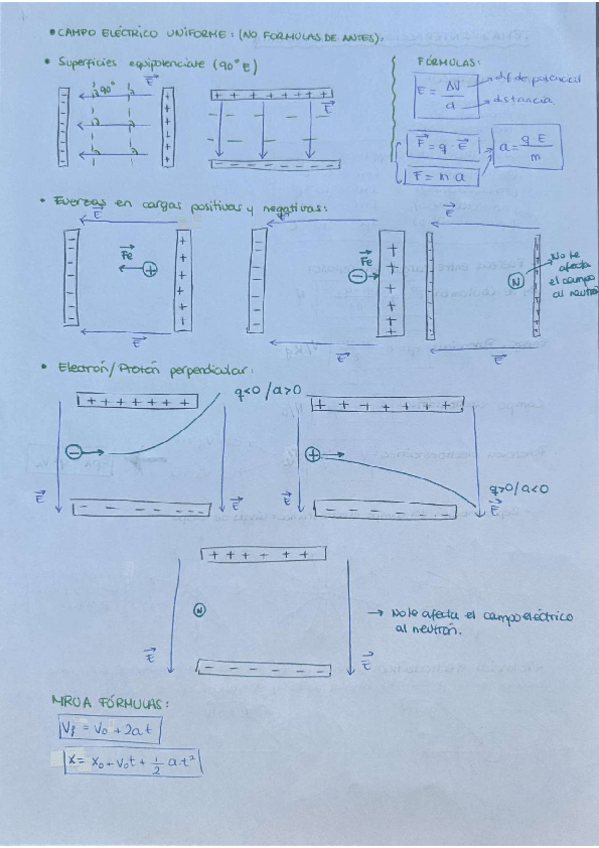 • CAMPO ELÉCTRICO UNIFORME: (NO FORMULAS DE ANTES).
• Superficies equipotenciale (90° E)
90°
E
E
FÓRMULAS:
E = ΔV / d
dif de potencial
distancia
F = q · E
F = m a
a = q · E / m
• Fuerzas en cargas positivas y negativas:
E
E
E
Fe
+
Fe
−
N
No le
afecta
el campo
al neutrón
E
E
E
• Electrón/Protón perpendicular:
q<0 / a>0
+ + + + + + +
+ + + + + + +
−
+
E
E
E
q>0 / a<0
E
− − − − − − −
+ + + + + +
N
→ No le afecta el campo eléctrico
al neutrón.
E
E
− − − − − − −
MRUA FÓRMULAS:
Vf = V0 + 2a t
X = X0 + V0t + 1/2 a.t²